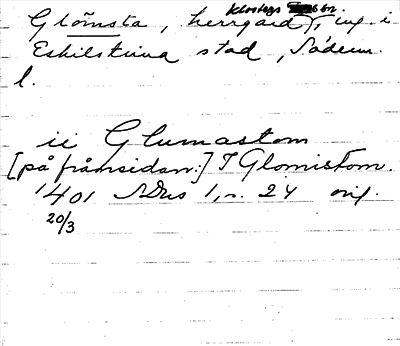 Glömsta, herrgård, Klosters sn. ing. i
Eskilstuna stad, Söderm.
l.
ii Glumastom
[på frånsidan:] I Glomistom.
1401 SDns 1, n. 24 orig.
20/3